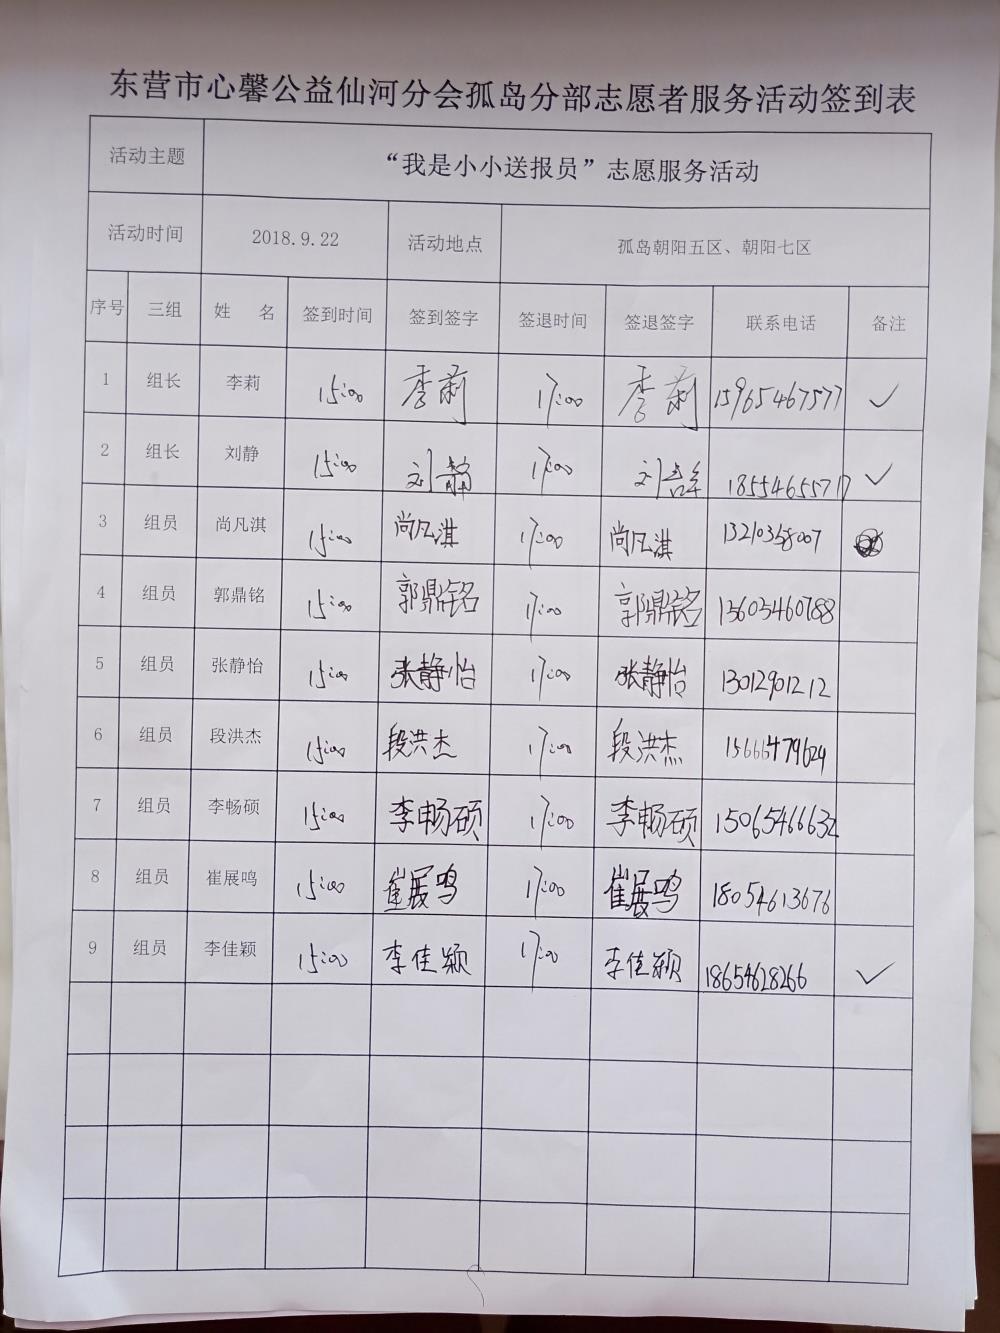 东营市心馨公益仙河分会孤岛分部志愿者服务活动签到表
活动主题 “我是小小送报员”志愿服务活动
活动时间 2018.9.22 活动地点 孤岛朝阳五区、朝阳七区
序号 三组 姓 名 签到时间 签到签字 签退时间 签退签字 联系电话 备注
1 组长 李莉 15:00 李莉 17:00 李莉 15965467577 ✓
2 组长 刘静 15:00 刘静 17:00 刘静 18554655717 ✓
3 组员 尚凡淇 15:00 尚凡淇 17:00 尚凡淇
4 组员 郭鼎铭 15:00 郭鼎铭 17:00 郭鼎铭 13605460788
5 组员 张静怡 15:00 张静怡 17:00 张静怡 13012901212
6 组员 段洪杰 15:00 段洪杰 17:00 段洪杰
7 组员 李畅硕 15:00 李畅硕 17:00 李畅硕 15065466632
8 组员 崔展鸣 15:00 崔展鸣 17:00 崔展鸣 18054613676
9 组员 李佳颖 15:00 李佳颖 17:00 李佳颖 18654628266 ✓